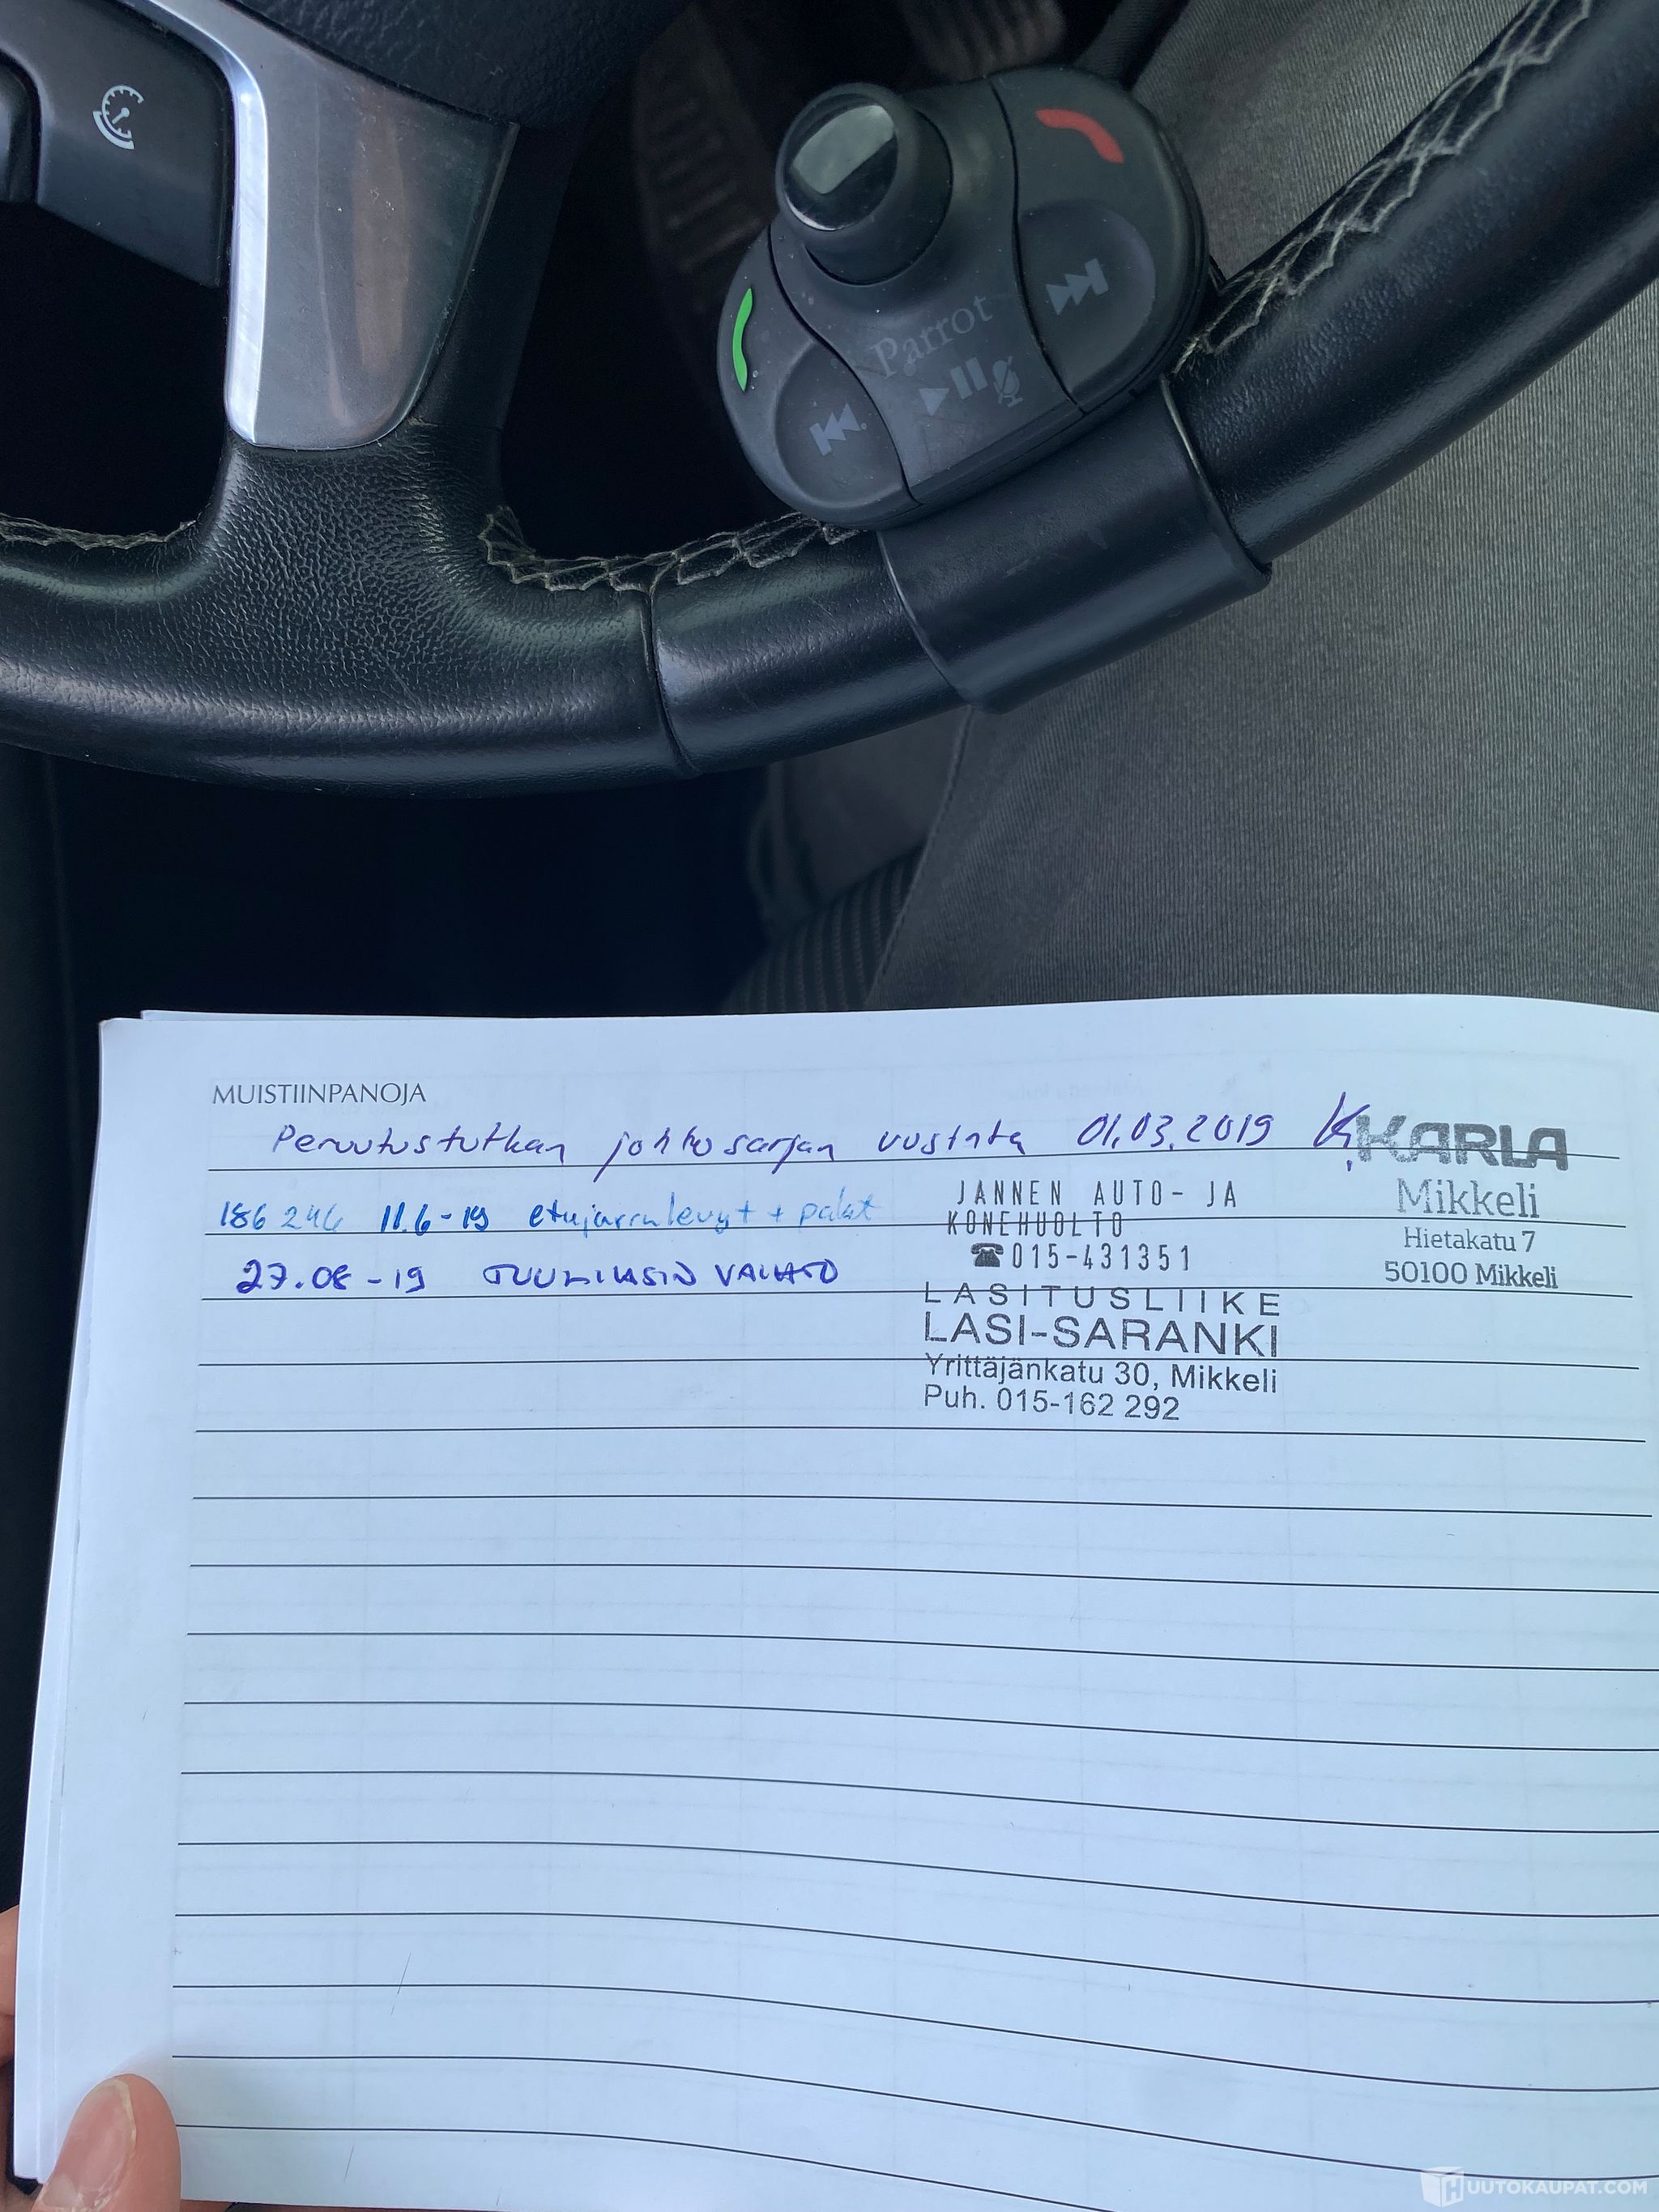 Parrot
MUISTIINPANOJA
Peruutustutkan johtosarjan uusinta 01.03.2019 K. KARLA
Mikkeli
Hietakatu 7
50100 Mikkeli
186 246 11.6-19 etujarrulevyt + palat
JANNEN AUTO- JA
KONEHUOLTO
☎015-431351
27.08-19 TUULILASIN VAIHTO
LASITUSLIIKE
LASI-SARANKI
Yrittäjänkatu 30, Mikkeli
Puh. 015-162 292
HUUTOKAUPAT.COM